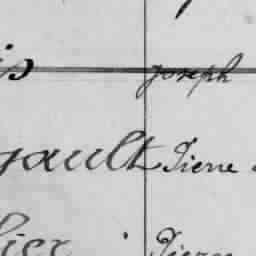 is Joseph
gault Pierre
lier Pierre